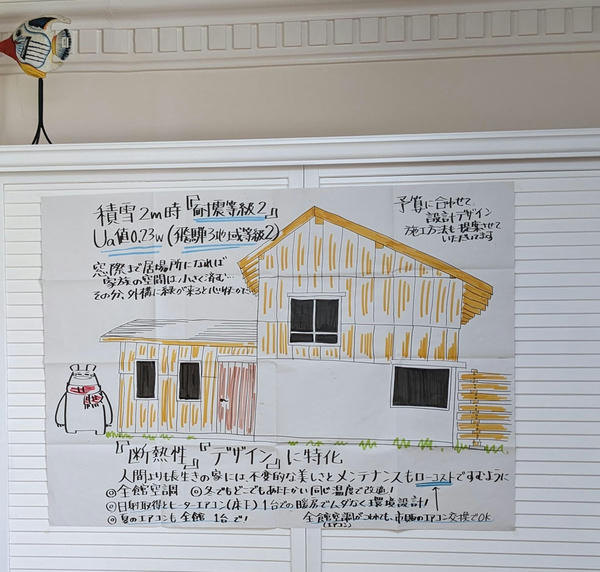 積雪2m時『耐震等級2』
Ua値0.23w(飛騨3地域等級2)
窓際まで居場所になれば
家族の空間は小さくて済む…
その分、外構に緑が来ると心
予算に合わせて
設計デザイン
施工方法も提案させて
いただいてます
『断熱性』『デザイン』に特化
人間よりも長生きの家には、不変的な美しさとメンテナンスもローコストですむように
◎全館空調 ◎冬でもどこでもあたたかい同じ温度で改造!
◎日射取得とヒーターエアコン(床下)1台での暖房でムダなく環境設計!
◎夏のエアコンも全館1台で! 全館空調がこわれても、市販のエアコン交換でOK
(エアコン)